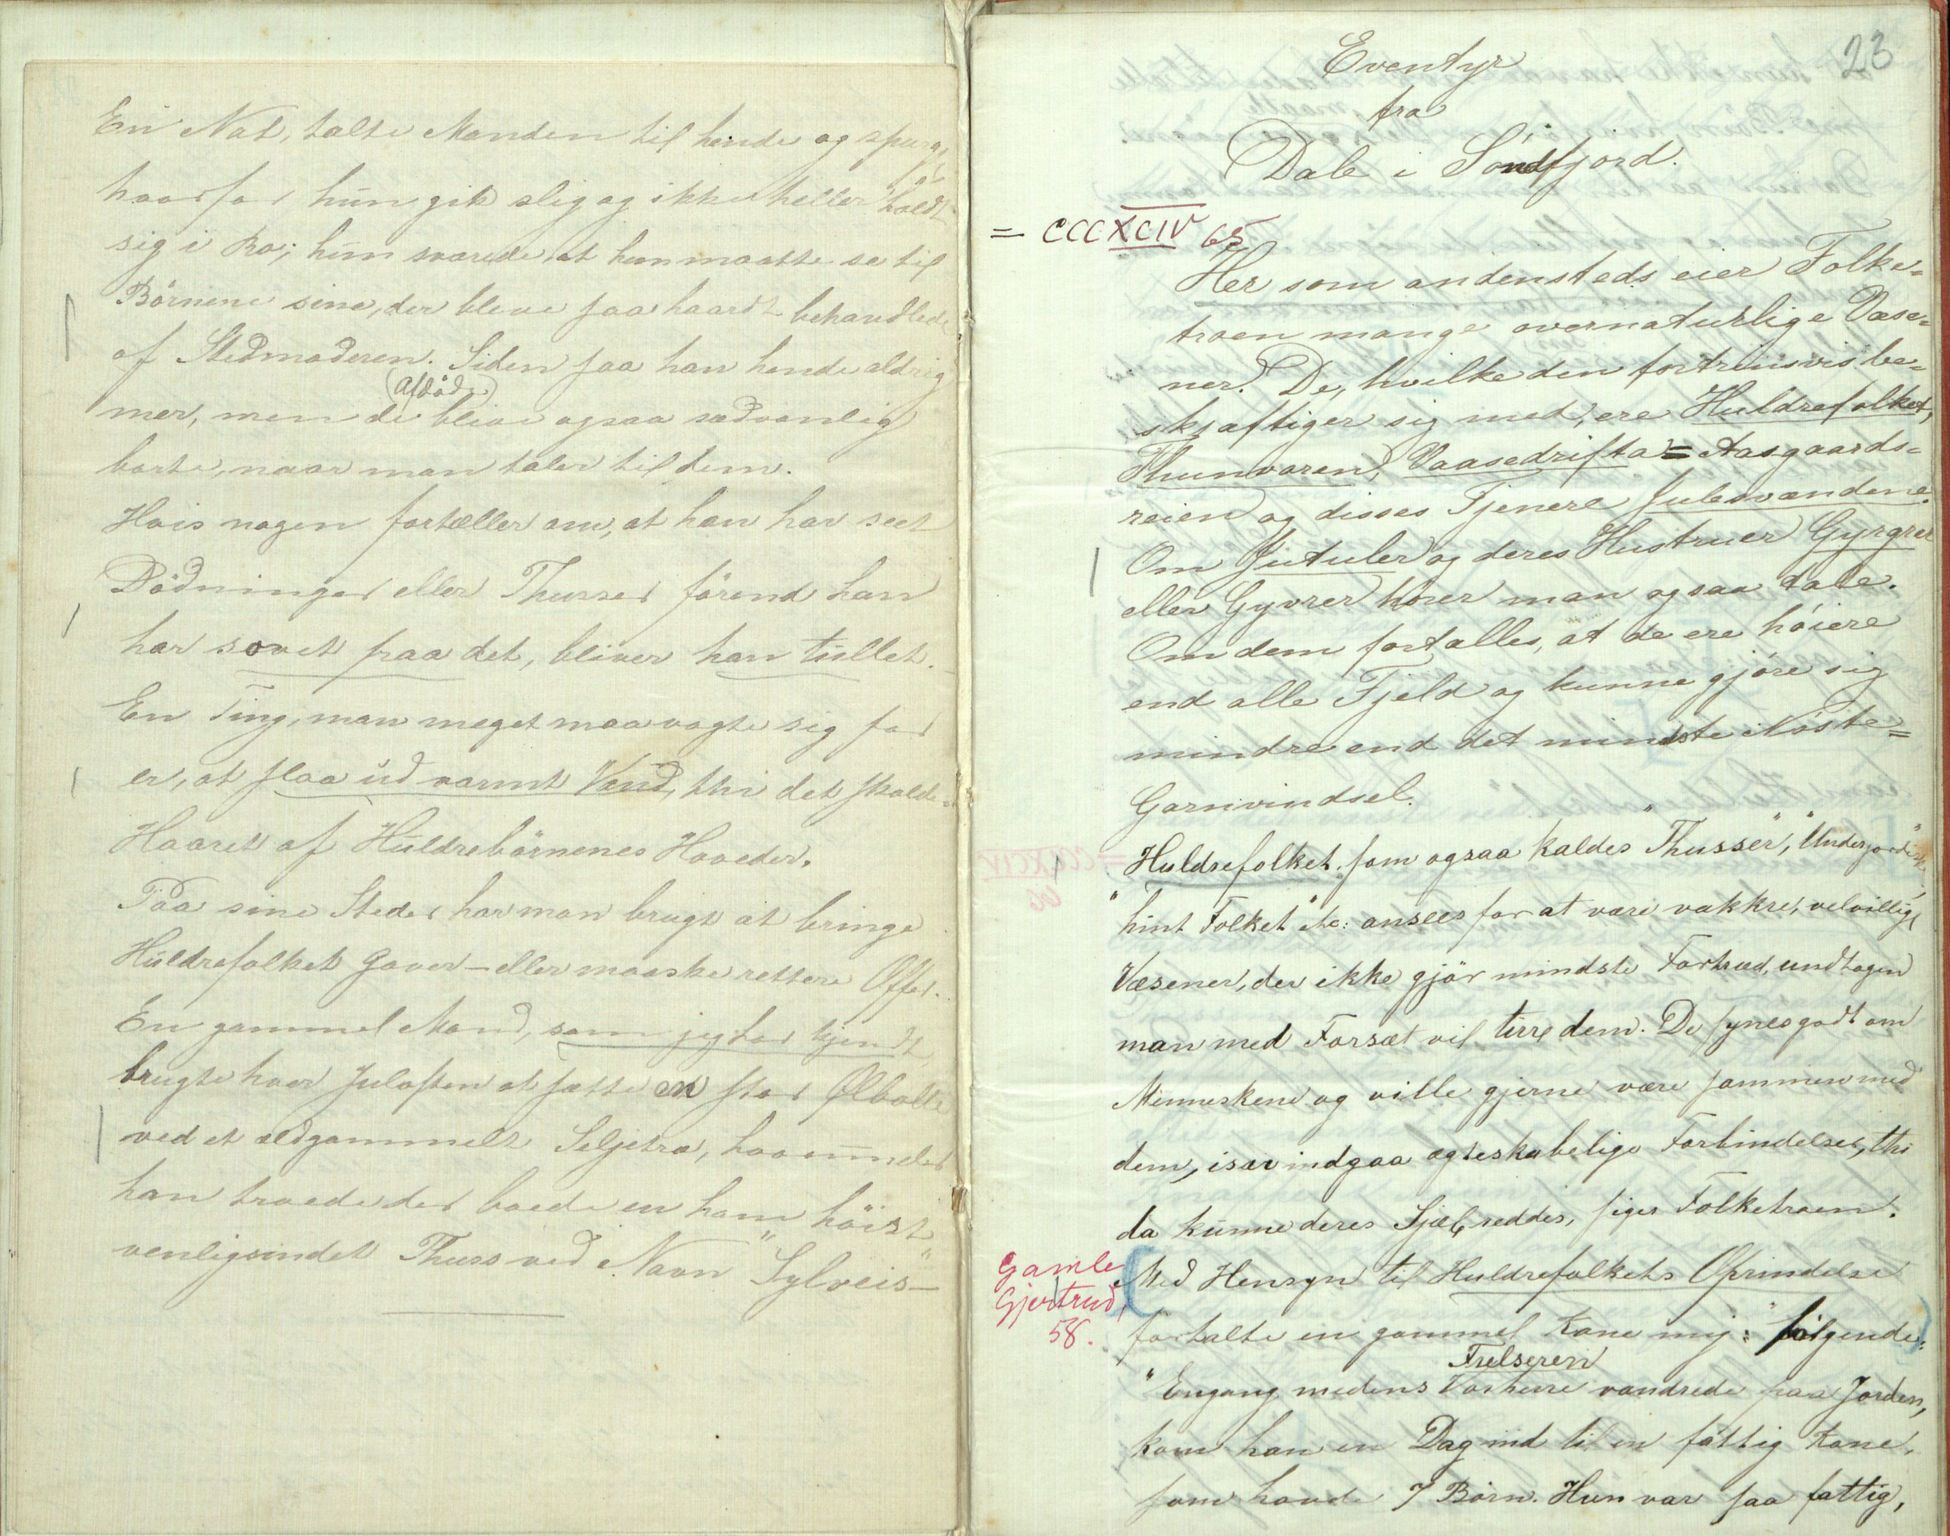 En Nat, talte Manden til hende og spurgte
hvorfor hun gik slig og ikke heller holdt
sig i Ro; hun svarede at hun maatte se til
Börnene sine, der bleve saa haardt behandlede
af Stedmoderen. Siden saa han hende aldrig
(Afdöde)
mer, men de blive ogsaa sædvanlig
borte, naar man taler til dem.
Hvis nogen fortæller om, at han har seet
Dödninger eller Thusser förend han
har sovet paa det, bliver han tullet.
En Ting, man meget maa vogte sig for
er, at slaa ud varmt Vand, thi det skolde
Haaret af Huldrebörnenes Hoveder.
Paa sine Steder har man brugt at bringe
Huldrefolket Gaver – eller maaske rettere Offer.
En gammel Mand, som jeg har kjendt
brugte hver Juleften at sætte en stor Ølbolle
ved et ældgammelt Seljetræ, hvorunder
han troede der boede en ham höist
venligsindet Thuss ved Navn "Sylveis"–
23
Eventyr
fra
Dale i Söndfjord.
= CCCXCIV 65
Her som andensteds eier Folke=
troen mange overnaturlige Væse=
ner. De, hvilke den fortrinsvis be=
skjæftiger sig med, ere Huldrefolket,
Thunvoren, Vaasedrifta = Aasgaards=
reien og disses Tjenere Julesvendene.
Om Jutuler og deres Hustruer Gyrgrer
eller Gyvrer hörer man ogsaa tale.
Om dem fortælles, at de ere höiere
end alle Fjeld og kunne gjöre sig
mindre end det mindste Nöste=
Garnvindsel.
Huldrefolket som ogsaa kaldes "Thusser", "Underjordiske"
"hint Folket" etc: ansees for at være vakkre, velvillige
Væsener, der ikke gjör mindste Fortræd, undtagen
man med Forsæt vil tirre dem. De synes godt om
Menneskene og ville gjerne være sammen med
dem, især indgaa ægteskabelige Forbindelser, thi
da kunne deres Sjæle reddes, siger Folketroen.
Gamle
Gjertrud,
58.
Med Hensyn til Huldrefolkets Oprindelse
fortalte en gammel Kone mig: følgende:
Frelseren
"Engang medens Vorherre vandrede paa Jorden,
kom han en Dag ind til en fattig Kone,
som havde 7 Börn. Hun var saa fattig,